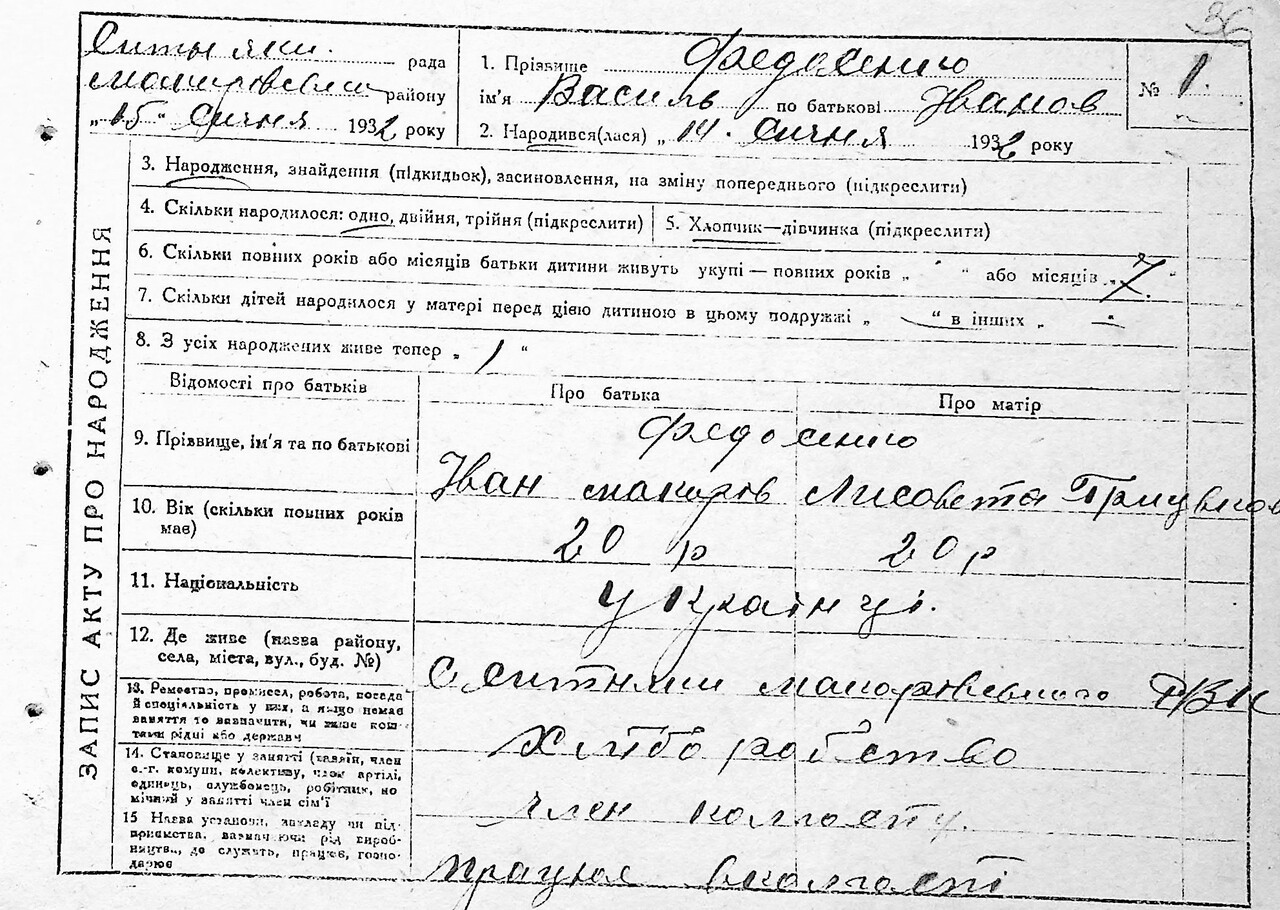 36
Ситняки рада
макарівський району
„15“ Січня 1932 року
1. Прізвище Федосенко
ім'я Василь по батькові Іванов
2. Народився(лася) „14. Січня 1932 року
№ 1.
ЗАПИС АКТУ ПРО НАРОДЖЕННЯ
3. Народження, знайдення (підкидьок), засиновлення, на зміну попереднього (підкреслити)
4. Скільки народилося: одно, двійня, трійня (підкреслити)
5. Хлопчик—дівчинка (підкреслити)
6. Скільки повних років або місяців батьки дитини живуть укупі — повних років „ “ або місяців „7“
7. Скільки дітей народилося у матері перед цією дитиною в цьому подружжі „ — “ в інших „ —
8. З усіх народжених живе тепер „ 1 “
Відомості про батьків
Про батька
Про матір
9. Прізвище, ім'я та по батькові
Федосенко
Іван макаров Лисовета
10. Вік (скільки повних років має)
20 р 20 р
11. Національність
українці.
12. Де живе (назва району, села, міста, вул., буд. №)
С Ситники макарівського РВК
13. Ремество, промисел, робота, посада
й спеціальність у них, а якщо немає
заняття то зазначити, чи живе кош-
тами рідні або держави
хліборобство
14. Становище у занятті (хазяїн, член
с.-г. комуни, колективу, член артілі,
одинець, службовець, робітник, по
мічний у занятті член сім'ї
член колгоспу.
15 Назва установи, закладу чи під-
приємства, зазначаючи рід вироб-
ництв., де служить, працює, госпо-
дарює
працює вколгоспі